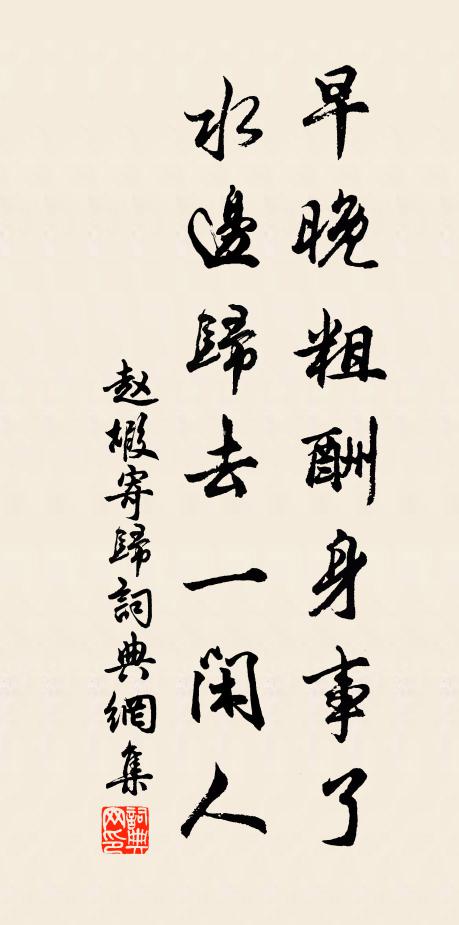 早晚粗酬身事了
水邊歸去一閑人
赵嘏寄歸詞典網集
詞典网印